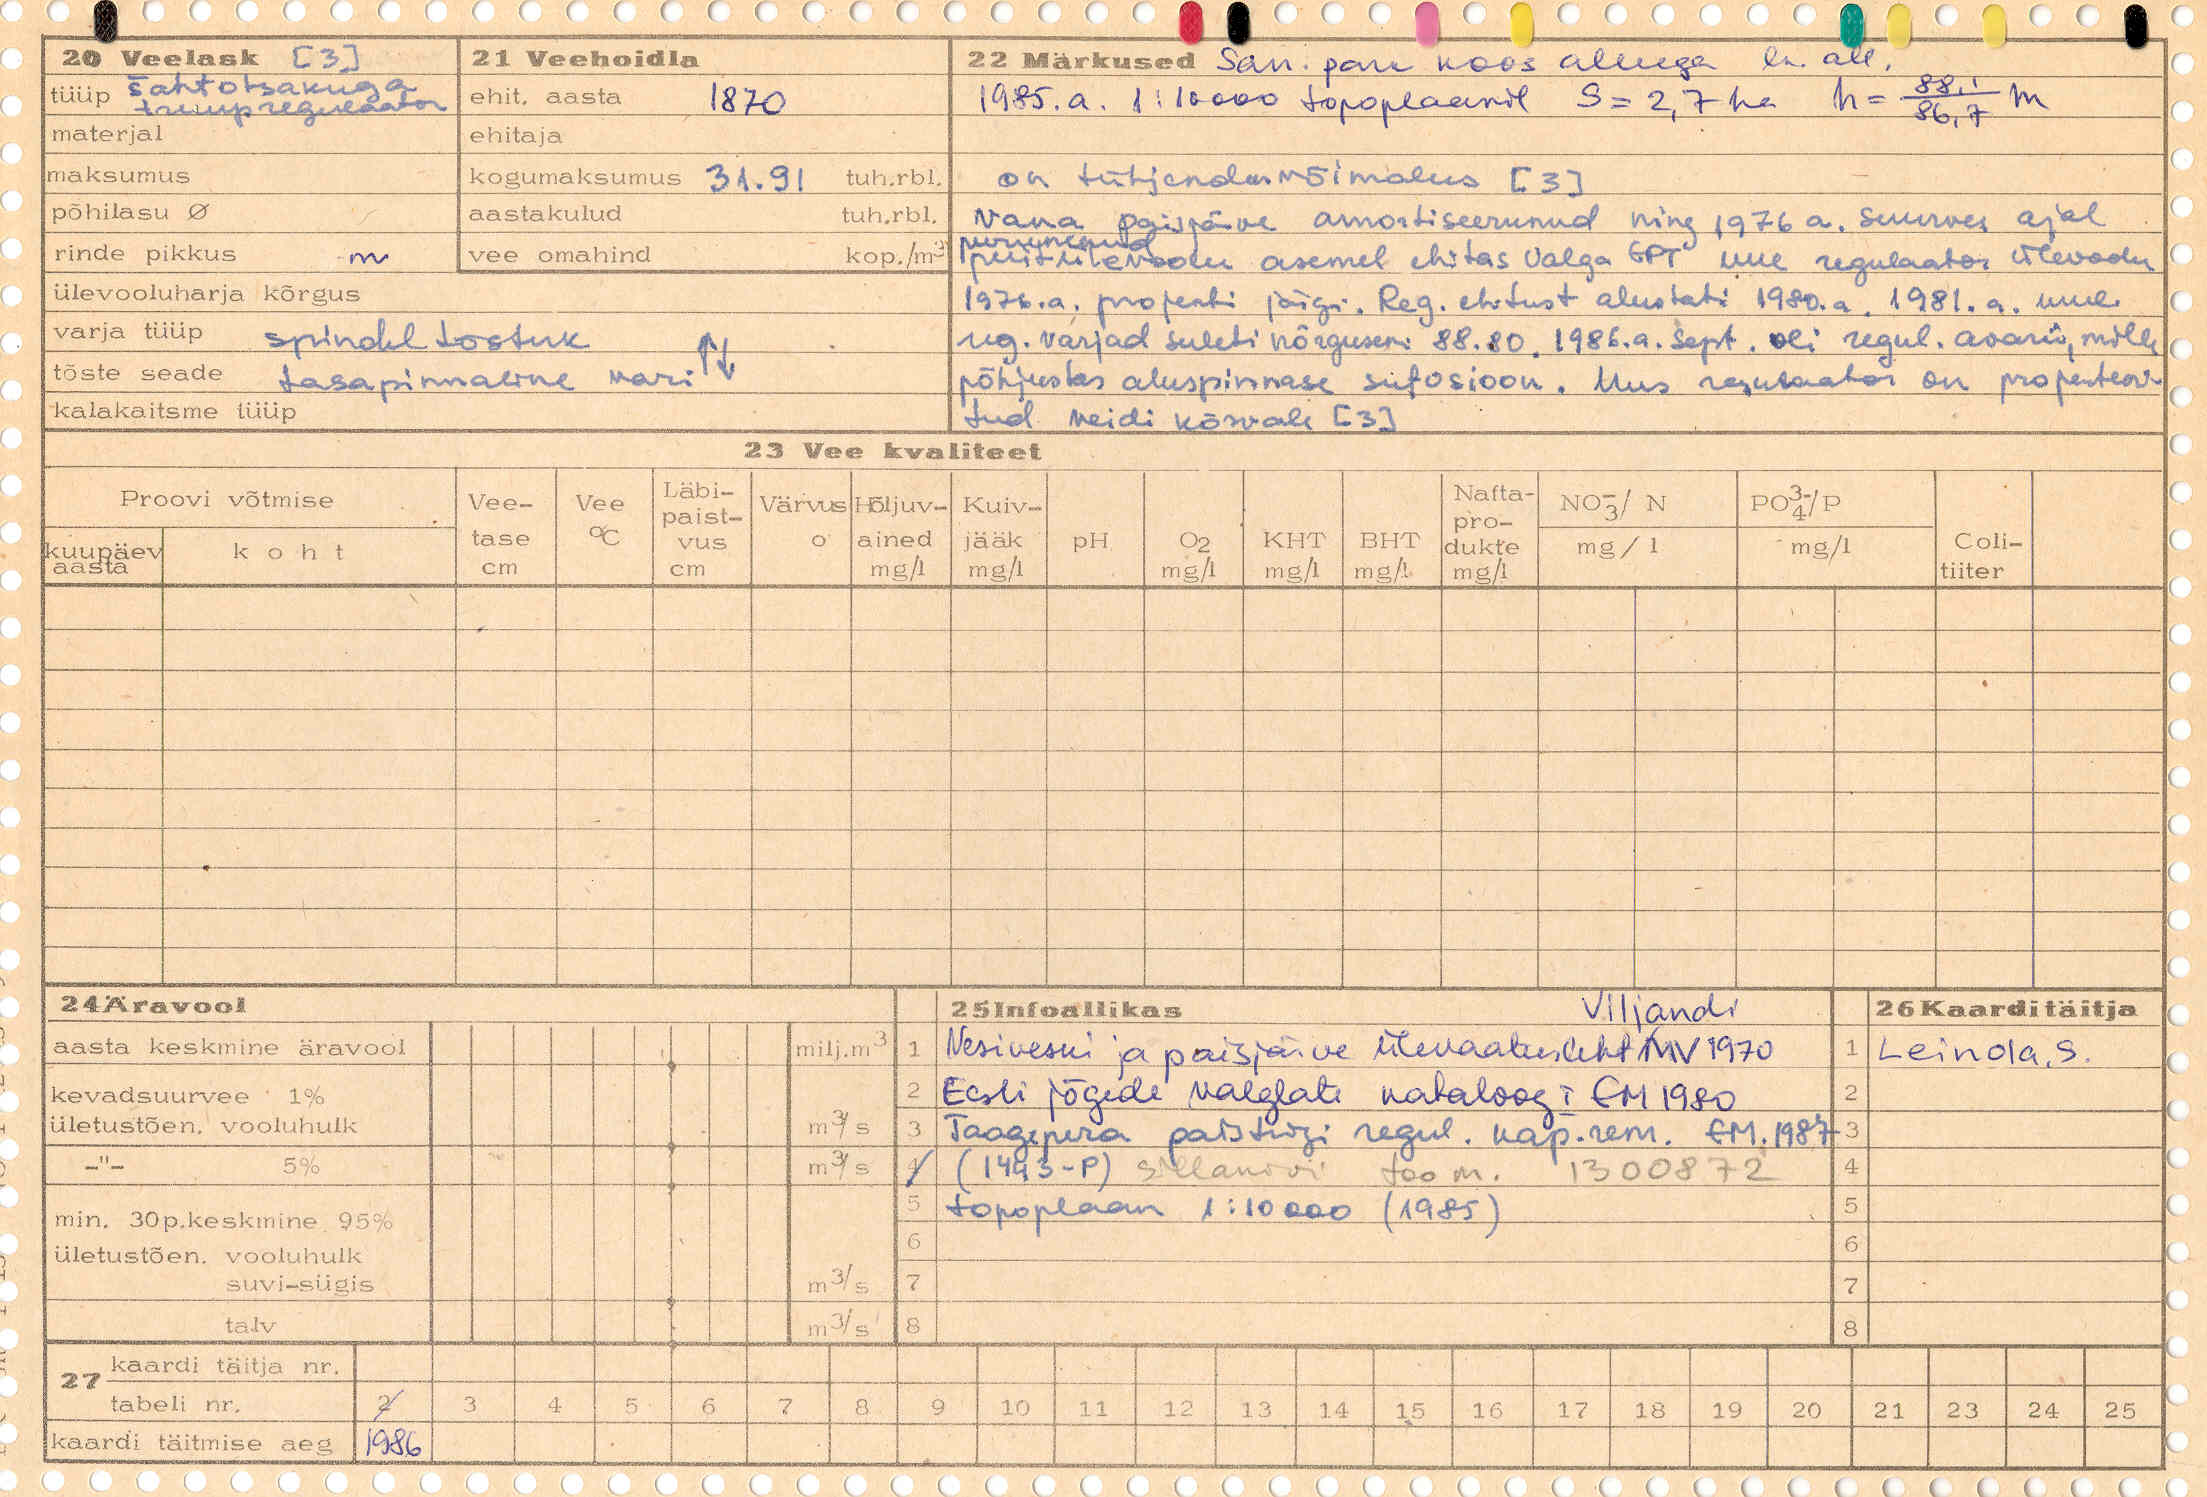 20 Veelask [3]
tüüp šahtotsakuga
truupregulaator
materjal
maksumus
põhilasu Ø
rinde pikkus m
ülevooluharja kõrgus
varja tüüp spindel tõstuk
tõste seade tasapinnaline vari
kalakaitsme tüüp
21 Veehoidla
ehit. aasta 1870
ehitaja
kogumaksumus 31.91 tuh.rbl.
aastakulud tuh.rbl.
vee omahind kop./m3
22 Märkused San. park koos alleega
1985.a. 1:10000 topoplaanil S = 2,7 ha h = 88,1/86,7 m
on tühjendusvõimalus [3]
Vana paisjärve amortiseerunud ning 1976 a. suurvee ajal
purunenud
puitülevoolu asemel ehitas Valga EPT uue regulaator ülevoolu
1976.a. projekti järgi. Reg. ehitust alustati 1980.a. 1981.a. uue
reg. varjad suleti kõrguseni 88.80. 1986.a. sept. oli regul. avarii, mille
põhjustas aluspinnase sufosioon. Uus regulaator on projekteeri-
tud veidi kõrvale [3]
23 Vee kvaliteet
Proovi võtmise
kuupäev aasta
koht
Vee-tase cm
Vee °C
Läbi-paist-vus cm
Värvus o
Hõljuv-ained mg/l
Kuiv-jääk mg/l
pH
O2 mg/l
KHT mg/l
BHT mg/l
Nafta-pro-dukte mg/l
NO3-/ N mg/l
PO4 3-/P mg/l
Coli-tiiter
24 Äravool
aasta keskmine äravool milj.m3
kevadsuurvee 1%
ületustõen. vooluhulk m3/s
-"- 5% m3/s
min. 30p.keskmine 95%
ületustõen. vooluhulk
suvi-sügis m3/s
talv m3/s
25 Infoallikas
Viljandi
1 Vesiveski ja paisjärve ülevaatusleht MV 1970
2 Eesti jõgede valglate kataloog I EM 1980
3 Taagepera paisu regul. kap.rem. EM.1987
4 (1443-P) 1300872
5 topoplaan 1:10000 (1985)
6
7
8
26 Kaarditäitja
1 Leinola, S.
2
3
4
5
6
7
8
27 kaardi täitja nr.
tabeli nr. 2 3 4 5 6 7 8 9 10 11 12 13 14 15 16 17 18 19 20 21 23 24 25
kaardi täitmise aeg 1986